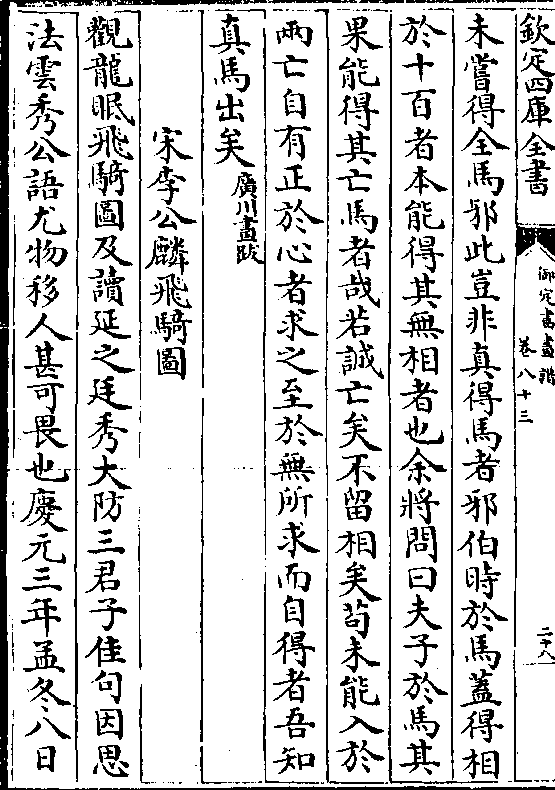 欽定四庫全書
御定書畫譜
卷八十三
二十八
未嘗得全馬邪此豈非真得馬者邪伯時於馬蓋得相
於十百者本能得其無相者也余將問曰夫子於馬其
果能得其亡馬者哉若誠亡矣不留相矣苟未能入於
兩亡自有正於心者求之至於無所求而自得者吾知
真馬出矣廣川畫跋
宋李公麟飛騎圖
觀龍眠飛騎圖及讀延之廷秀大防三君子佳句因思
法雲秀公語尤物移人甚可畏也慶元三年孟冬八日